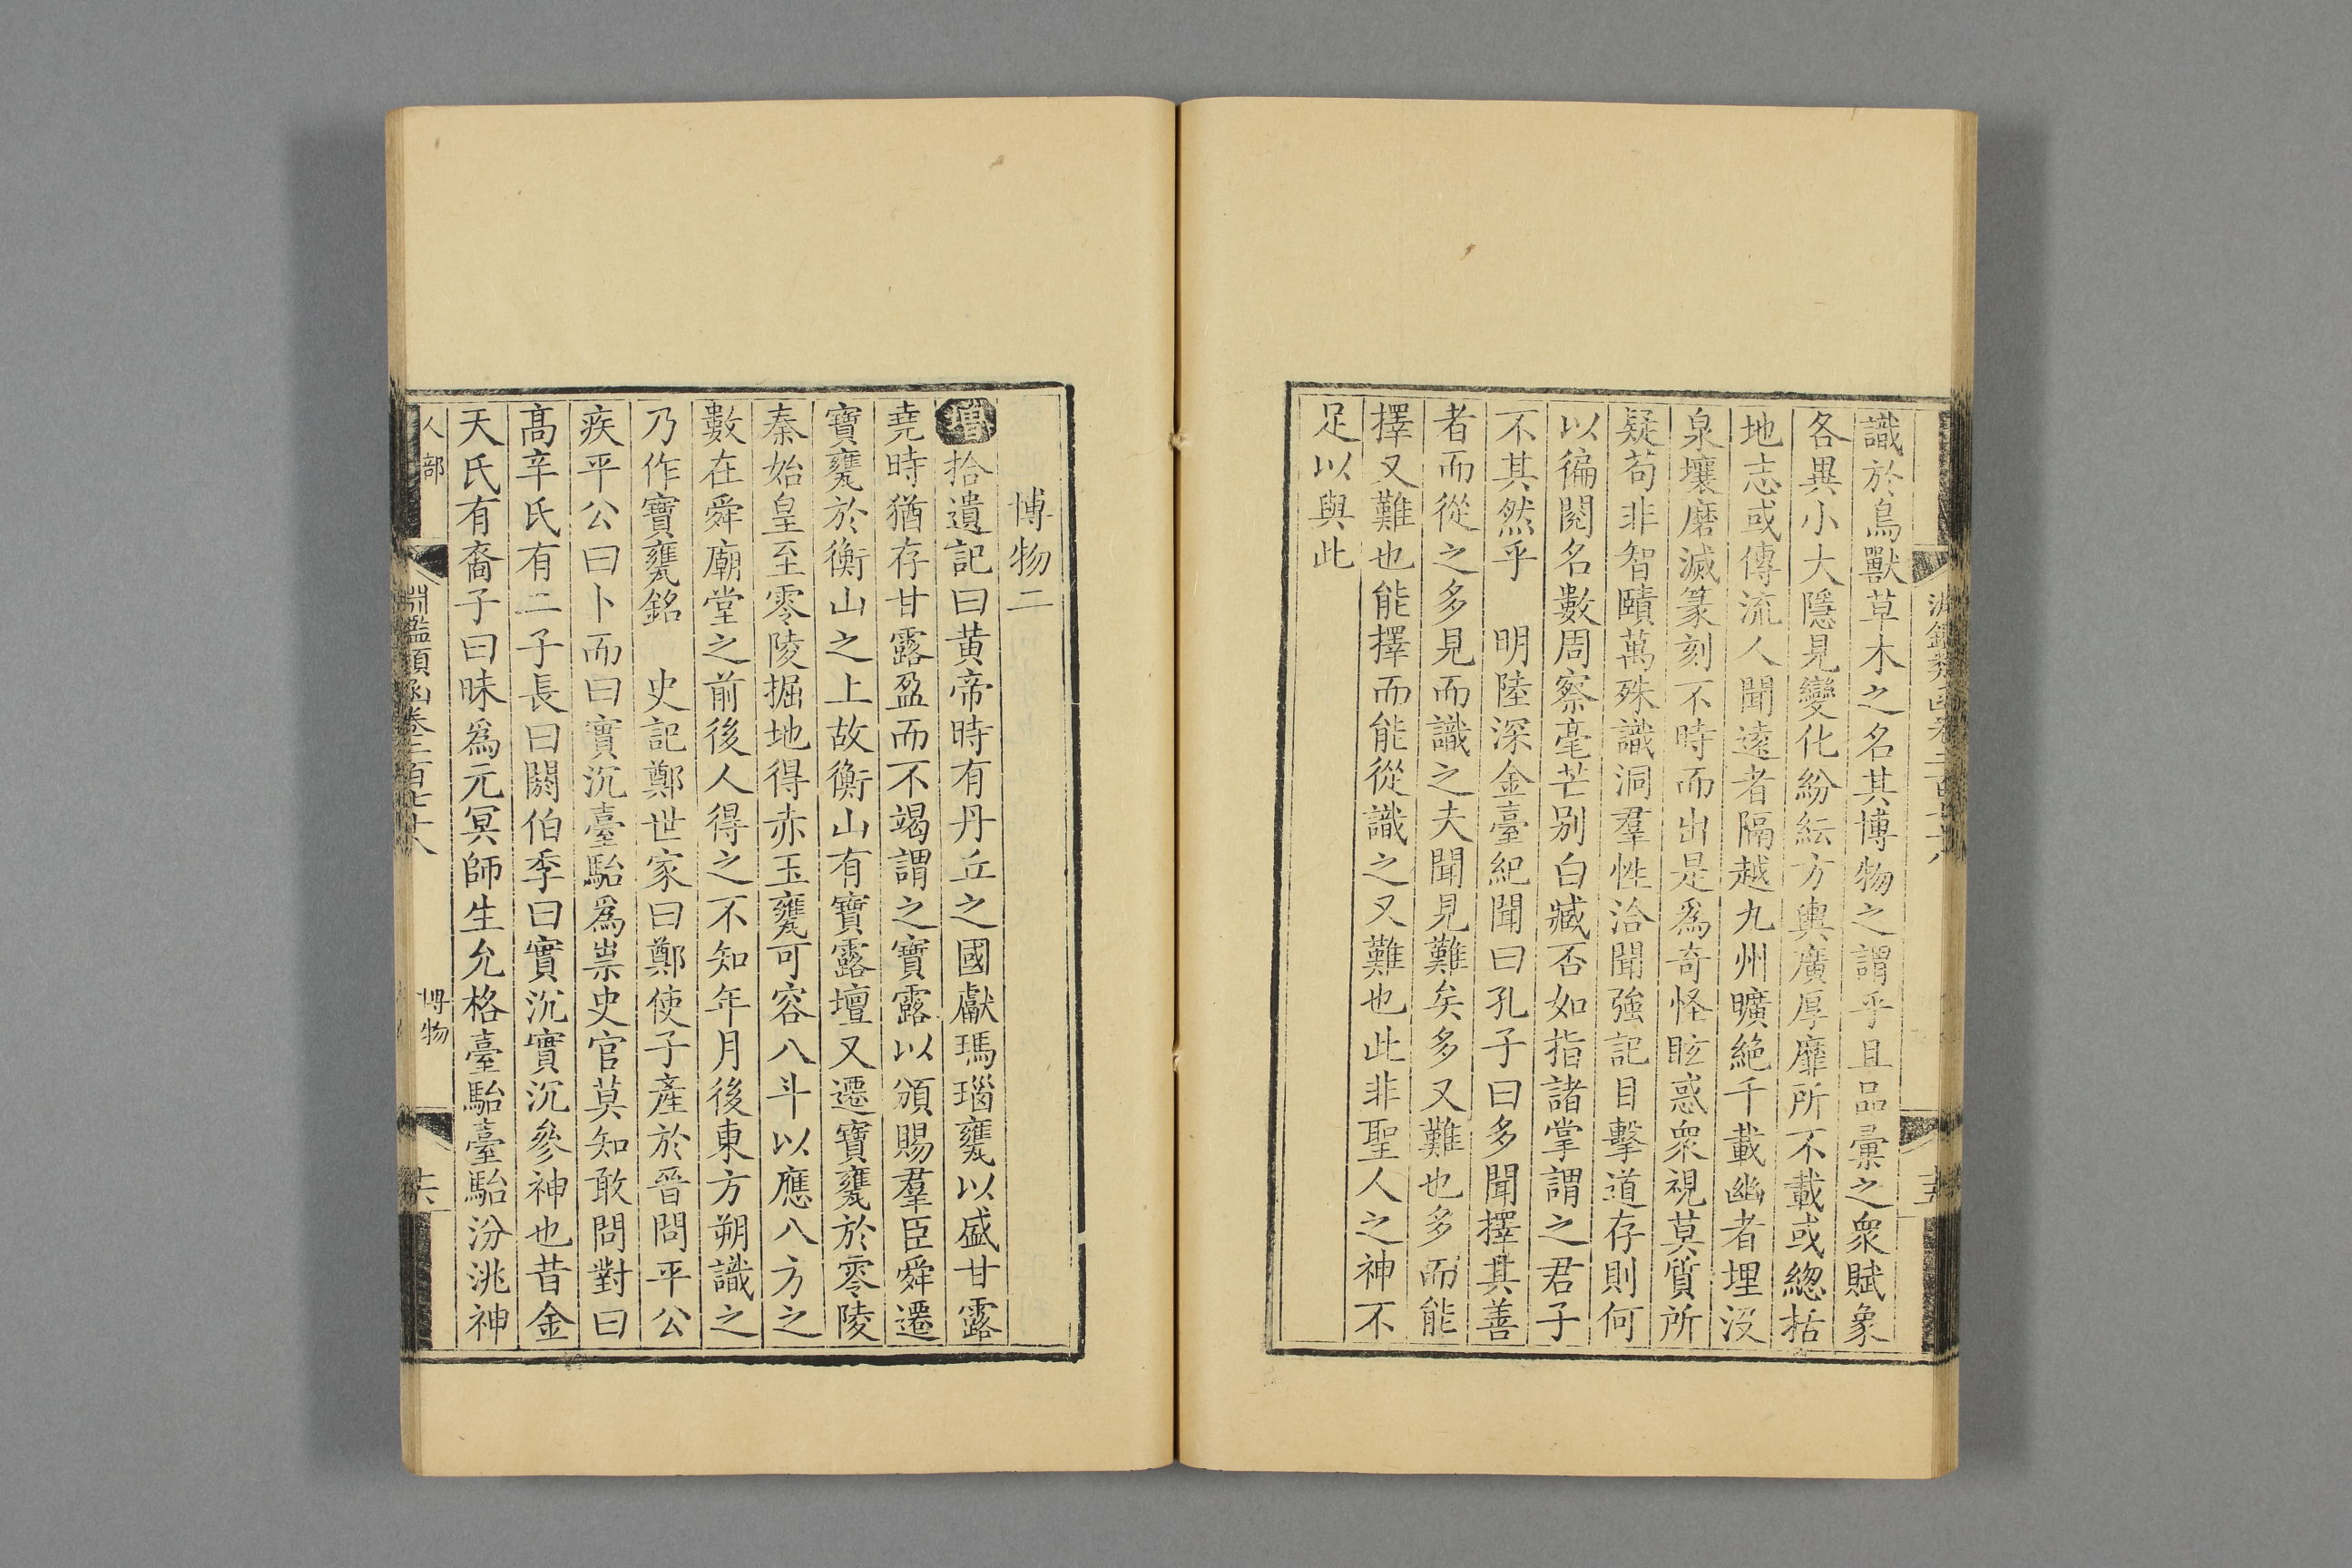 識於鳥獸草木之名其博物之謂乎且品彙之衆賦象
各異小大隱見變化紛紜方輿廣厚靡所不載或緫括
地志或傳流人聞遠者隔越九州曠絶千載幽者埋没
泉壤磨滅篆刻不時而出是爲奇怪眩惑衆視莫質所
疑苟非智賾萬殊識洞羣性洽聞強記目擊道存則何
以徧閱名數周察毫芒别白臧否如指諸掌謂之君子
不其然乎　明陸深金臺紀聞曰孔子曰多聞擇其善
者而從之多見而識之夫聞見難矣多又難也多而能
擇又難也能擇而能從識之又難也此非聖人之神不
足以與此
博物二
增拾遺記曰黄帝時有丹丘之國獻瑪瑙甕以盛甘露
堯時猶存甘露盈而不竭謂之寶露以頒賜羣臣舜遷
寶甕於衡山之上故衡山有寶露壇又遷寶甕於零陵
秦始皇至零陵掘地得赤玉甕可容八斗以應八方之
數在舜廟堂之前後人得之不知年月後東方朔識之
乃作寶甕銘　史記鄭世家曰鄭使子產於晉問平公
疾平公曰卜而曰實沉臺駘爲祟史官莫知敢問對曰
高辛氏有二子長曰閼伯季曰實沉實沉參神也昔金
天氏有裔子曰昧爲元冥師生允格臺駘臺駘汾洮神
人部
博物